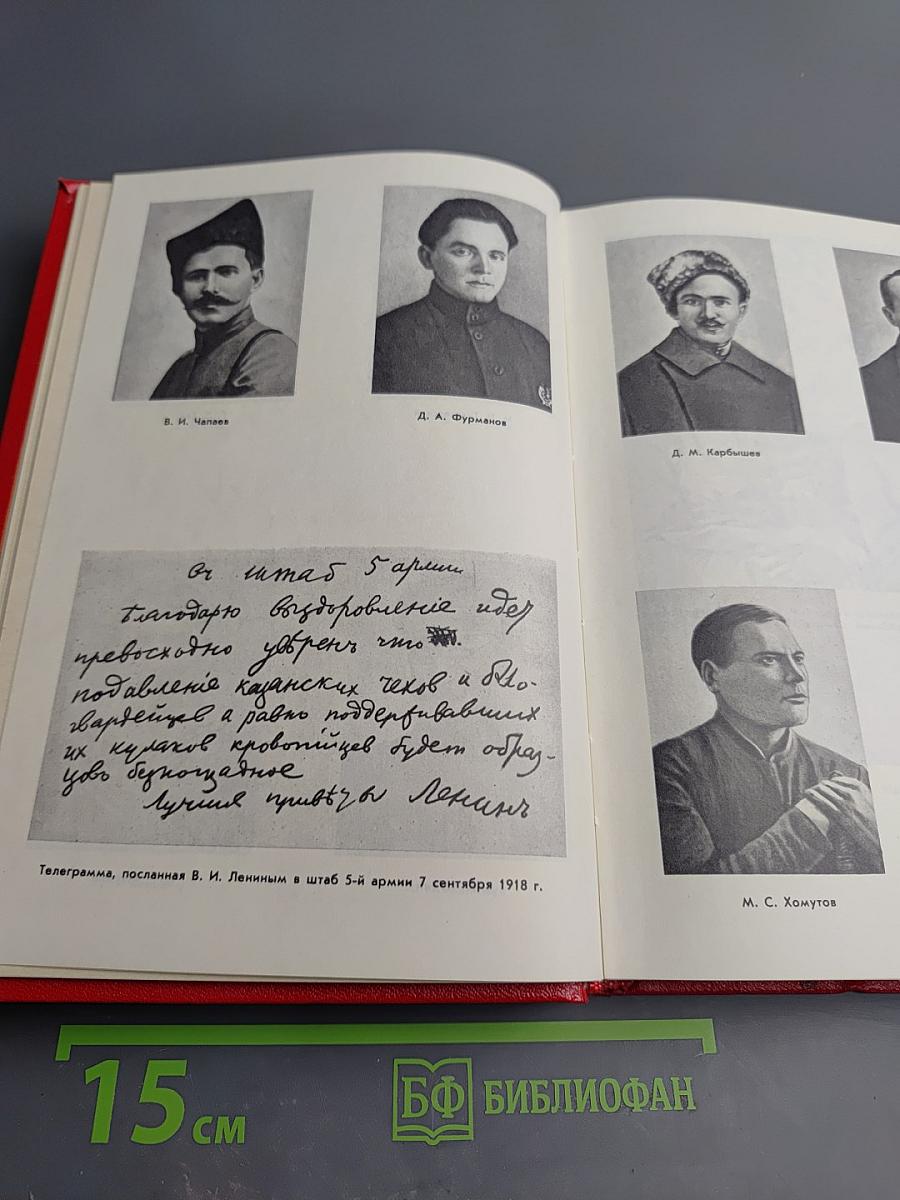 В. И. Чапаев
Д. А. Фурманов
въ штаб 5 армии
Благодарю выздоровленіе идет
превосходно увѣренъ что
подавленіе казанских чехов и бѣло-
гвардейцев а равно поддерживавших
их кулаков кровопійцев будет образ-
цово безпощадное
Лучшие привѣты Ленинъ
Телеграмма, посланная В. И. Лениным в штаб 5-й армии 7 сентября 1918 г.
Д. М. Карбышев
М. С. Хомутов
15 см
БФ БИБЛИОФАН